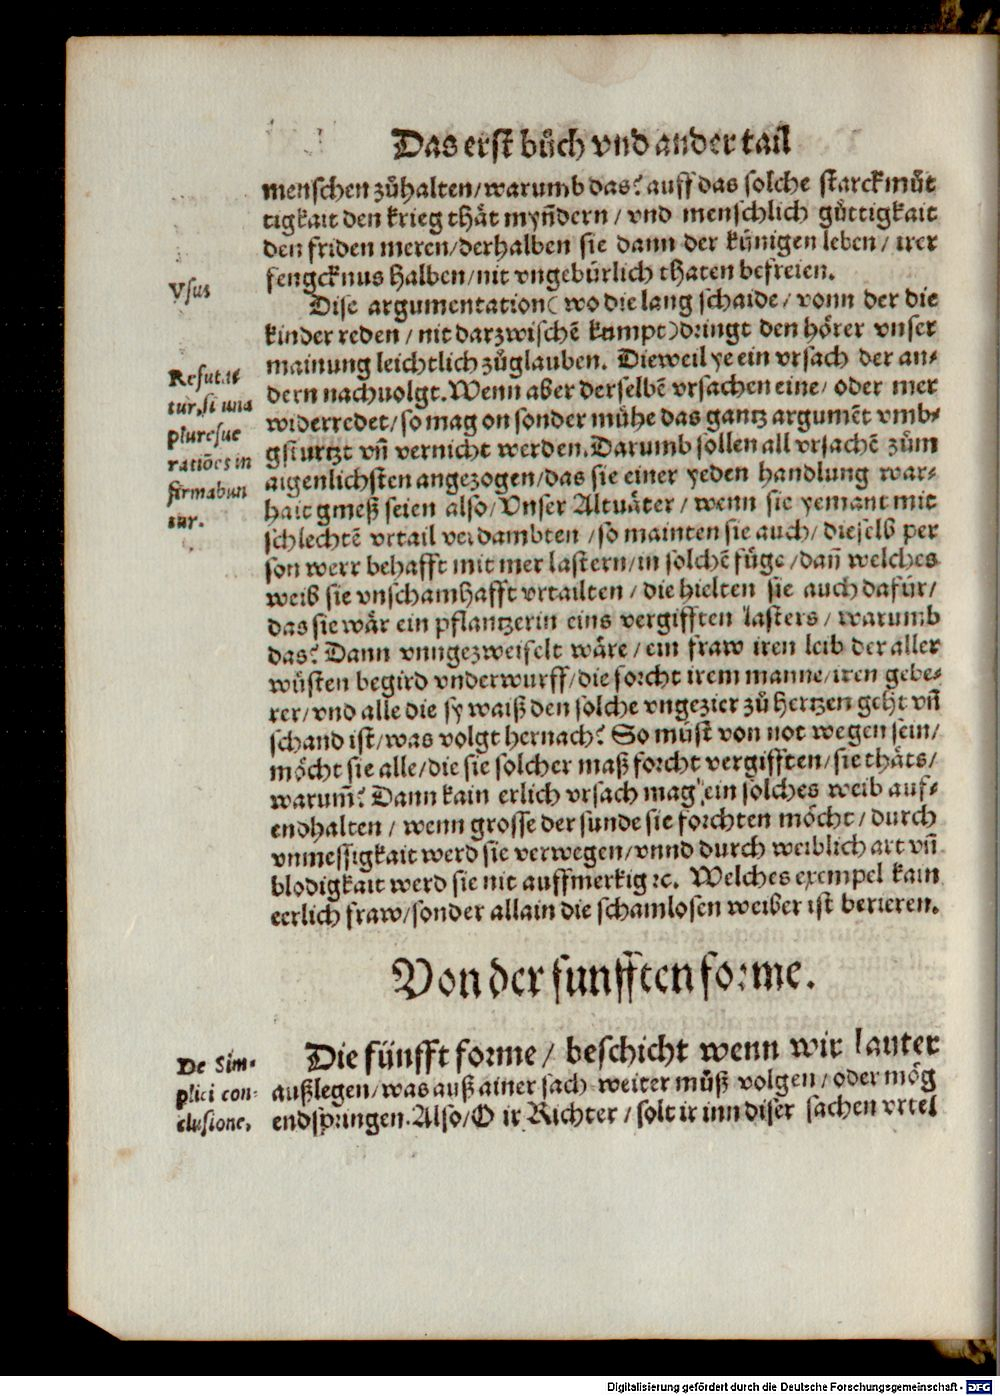 Das erst bůch vnd ander tail
menschen zůhalten/warumb das? auff das solche starckmůt
tigkait den krieg thät myñdern / vnd menschlich güttigkait
den friden meren/derhalben sie dann der künigen leben / irer
fengcknus halben/nit vngebürlich thaten befreien.
Vsus
Dise argumentation( wo die lang schaide / vonn der die
kinder reden / nit darzwischẽ kumpt)dringt den hörer vnser
mainung leichtlich zůglauben. Dieweil ye ein vrsach der an-
dern nachuolgt. Wenn aber derselbẽ vrsachen eine/ oder mer
widerredet/so mag on sonder mühe das gantz argumẽt vmb-
gstürtzt vñ vernicht werden. Darumb sollen all vrsachẽ zům
aigenlichsten angezogen/das sie einer yeden handlung war-
hait gmeß seien also/ Vnser Altuäter / wenn sie yemant mit
schlechtẽ vrtail verdambten /so mainten sie auch/ dieselb per
son werr behafft mit mer lastern/in solchẽ fůge /dañ welches
weib sie vnschamhafft vrtailten / die hielten sie auch dafür/
das sie wär ein pflantzerin eins vergifften lasters / warumb
das? Dann vnngezweifelt wäre / ein fraw iren leib der aller
wůsten begird vnderwurff/die forcht irem manne/iren gebe-
rer/vnd alle die sy waiß den solche vngezier zů hertzen geht vñ
schand ist/was volgt hernach? So můst von not wegen sein/
möcht sie alle/die sie solcher maß forcht vergifften/sie thäts/
warum̃? Dann kain erlich vrsach mag ein solches weib auf-
endhalten / wenn grosse der sunde sie forchten möcht / durch
vnmessigkait werd sie verwegen/vnnd durch weiblich art vñ
blodigkait werd sie nit auffmerkig ꝛc. Welches exempel kain
eerlich fraw/sonder allain die schamlosen weiber ist berieren.
Refuta
tur, si una
pluresue
ratiões in
firmabun
tur.
Von der funfften forme.
Die fünfft forme / beschicht wenn wir lauter
außlegen/was auß ainer sach weiter můß volgen / oder mög
endspringen. Also/ O ir Richter / solt ir inn diser sachen vrtel
De Sim-
plici con-
clusione.
Digitalisierung gefördert durch die Deutsche Forschungsgemeinschaft - DFG